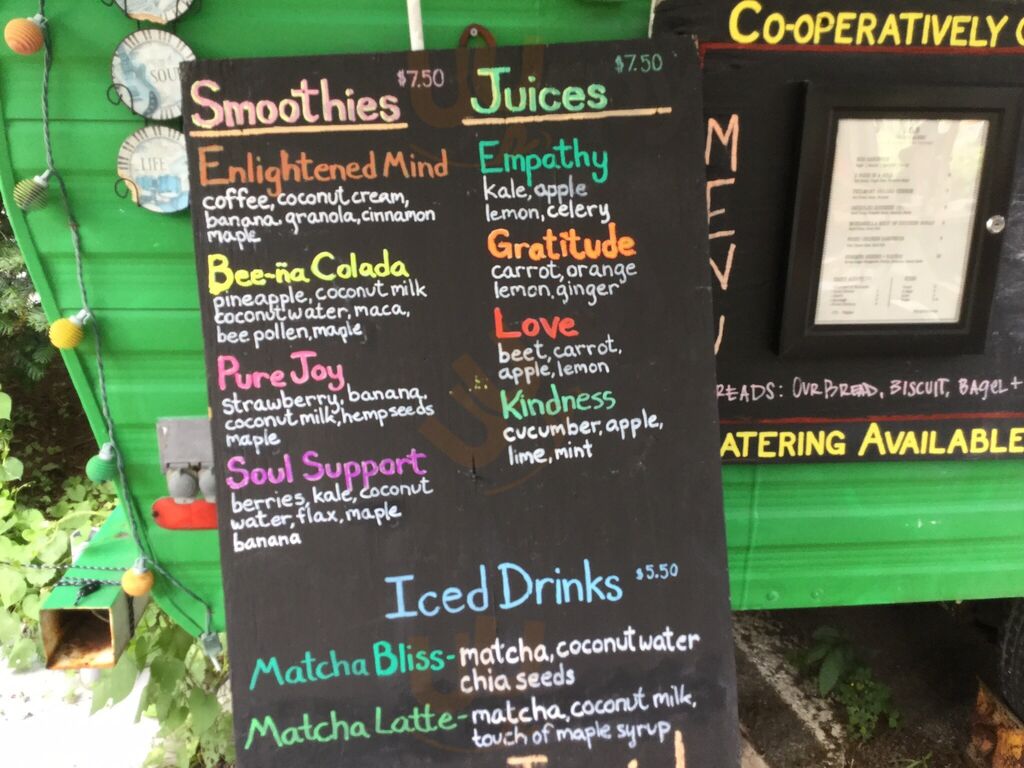 SOUL
LIFE
Smoothies $7.50
Enlightened Mind
coffee, coconut cream,
banana, granola, cinnamon
maple
Bee-ña Colada
pineapple, coconut milk
coconut water, maca,
bee pollen, maple
Pure Joy
strawberry, banana,
coconut milk, hemp seeds
maple
Soul Support
berries, kale, coconut
water, flax, maple
banana
Juices $7.50
Empathy
kale, apple
lemon, celery
Gratitude
carrot, orange
lemon, ginger
Love
beet, carrot,
apple, lemon
Kindness
cucumber, apple,
lime, mint
Iced Drinks $5.50
Matcha Bliss- matcha, coconut water
chia seeds
Matcha Latte- matcha, coconut milk,
touch of maple syrup
CO-OPERATIVELY
MENU
READS: OUR BREAD, BISCUIT, BAGEL +
ATERING AVAILABLE